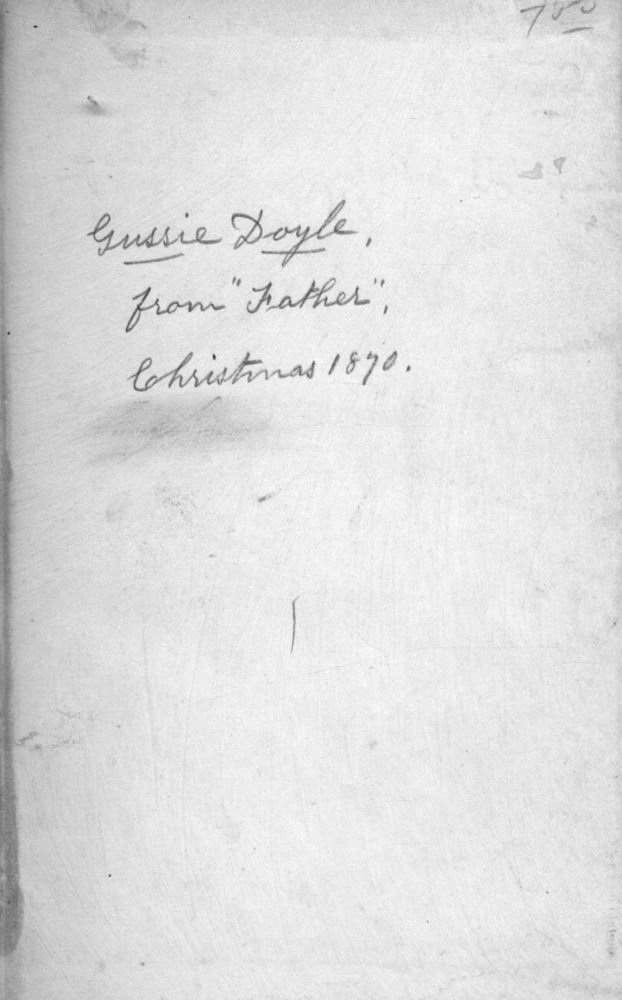 7 50
Gussie Doyle,
from "Father",
Christmas 1870.